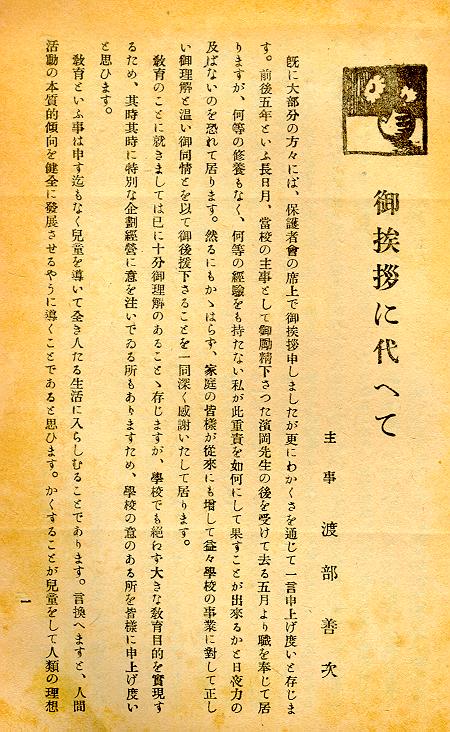 御挨拶に代へて
主事　渡部善次
既に大部分の方々には、保護者會の席上で御挨拶申しましたが更にわかくさを通じて一言申上げ度いと存じま
す。前後五年といふ長日月、當校の主事として御勵精下さつた濱岡先生の後を受けて去る五月より職を奉じて居
りますが、何等の修養もなく、何等の經驗をも持たない私が此重責を如何にして果すことが出來るかと日夜力の
及ばないのを恐れて居ります。然るにもかゝはらず、家庭の皆樣が從來にも增して益々學校の事業に對して正し
い御理解と溫い御同情とを以て御後援下さることを一同深く感謝いたして居ります。
敎育のことに就きましては已に十分御理解のあることゝ存じますが、學校でも絶わす大きな敎育目的を實現す
るため、其時其時に特別な企劃經營に意を注いでゐる所もありますため、學校の意のある所を皆樣に申上げ度い
と思ひます。
敎育といふ事は申す迄もなく兒童を導いて全き人たる生活に入らしむることであります。言換へますと、人間
活動の本質的傾向を健全に發展させるやうに導くことであると思ひます。かくすることが兒童をして人類の理想
一